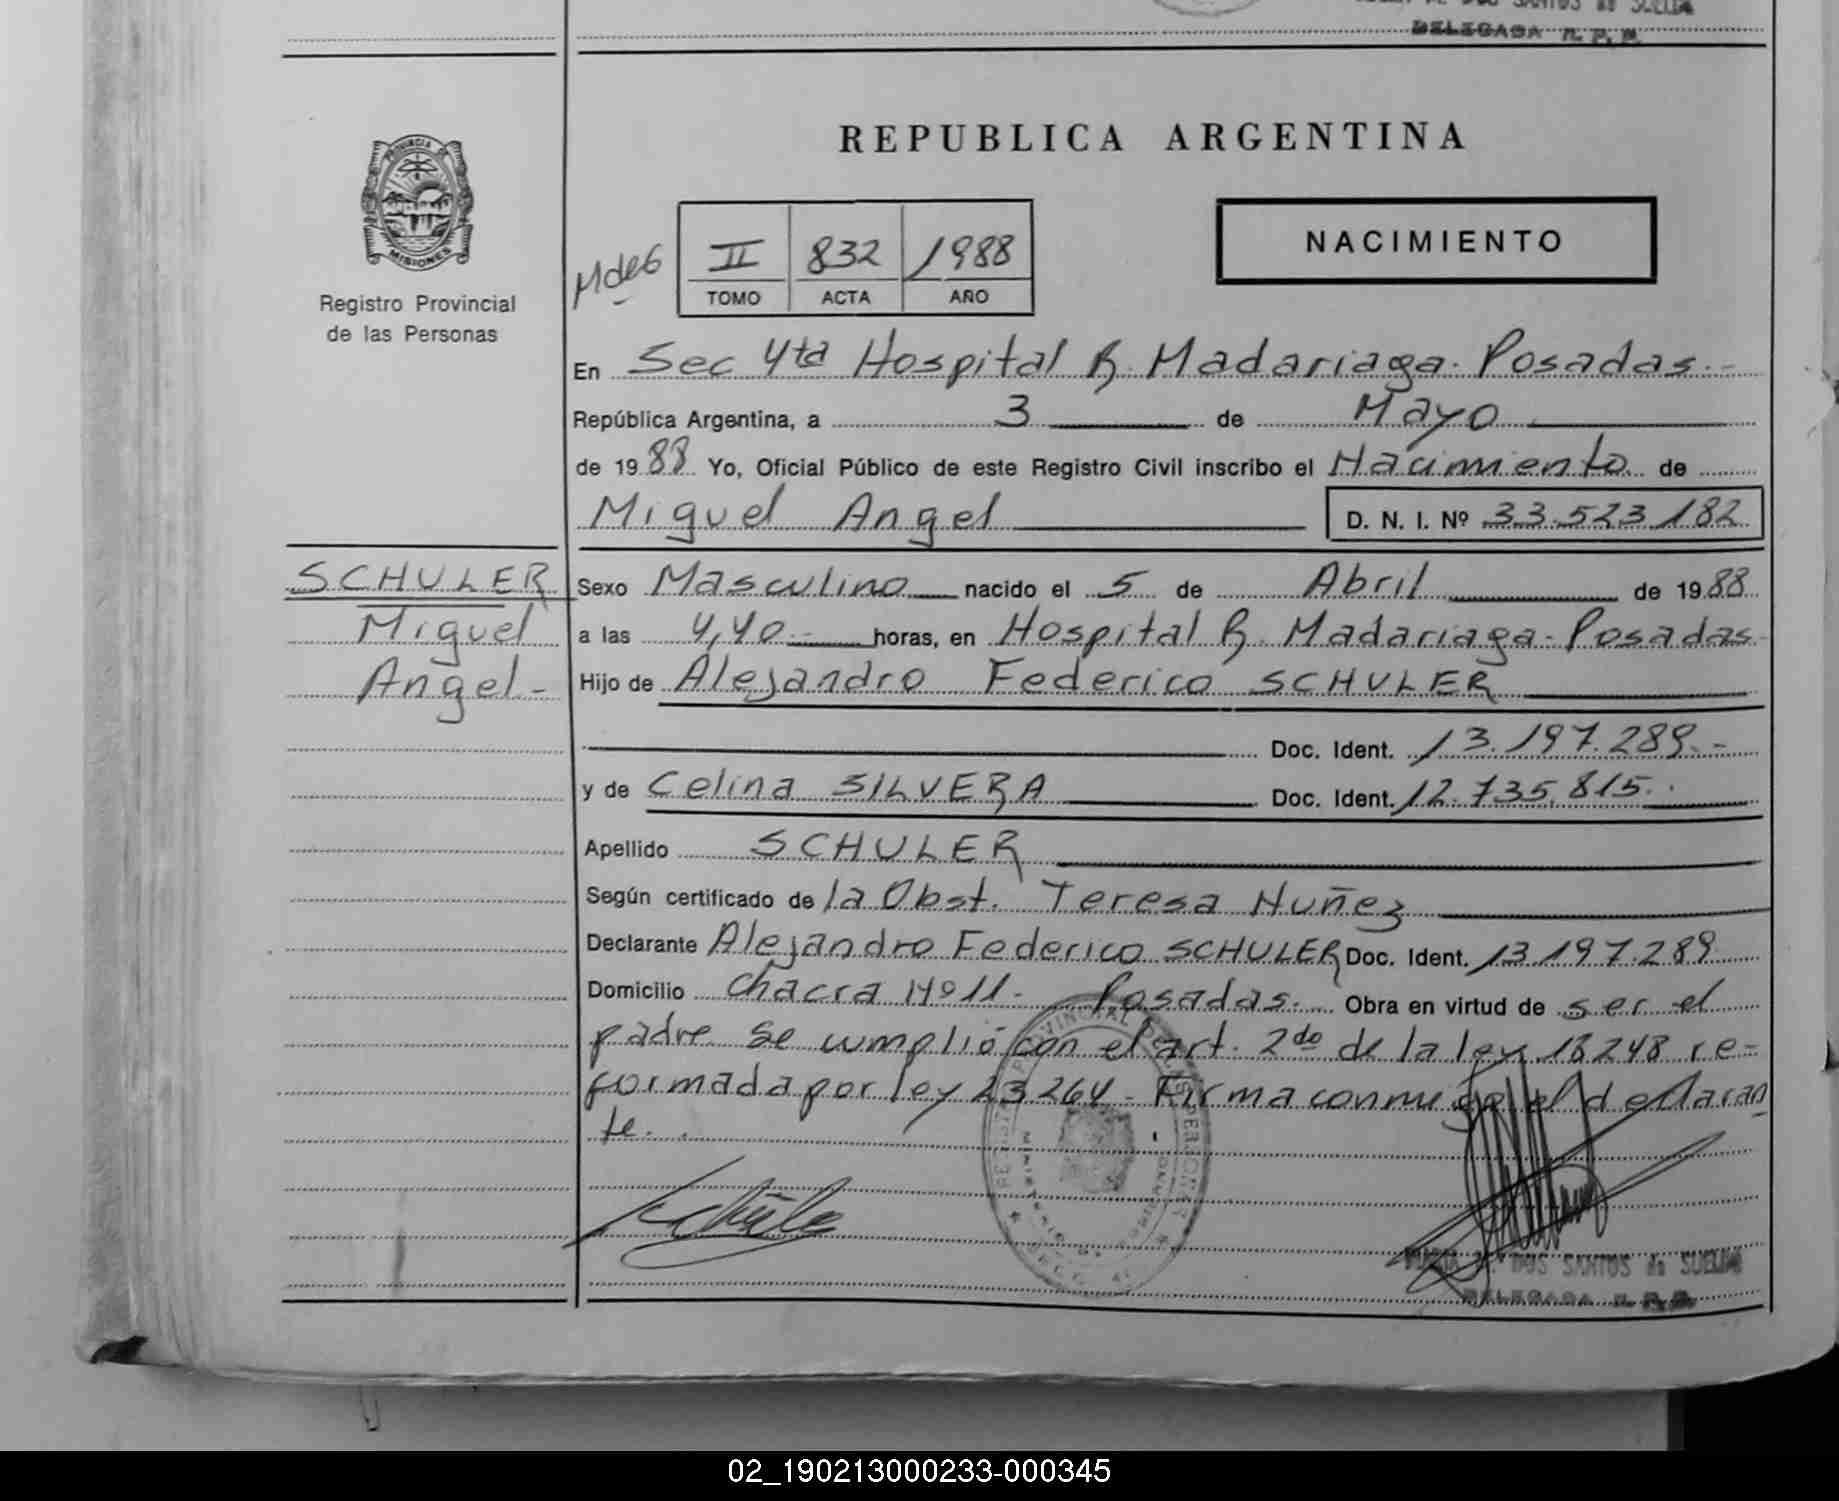 DELEGADA R. P. P.
REPUBLICA ARGENTINA
PROVINCIA DE
MISIONES
Registro Provincial
de las Personas
II 832 1988
TOMO ACTA AÑO
NACIMIENTO
En Sec 4ta Hospital R. Madariaga. Posadas.-
República Argentina, a 3 de Mayo
de 1988 Yo, Oficial Público de este Registro Civil inscribo el Nacimiento de
Miguel Angel D. N. I. Nº 33.523.182
SCHULER
Miguel
Angel-
Sexo Masculino nacido el 5 de Abril de 1988
a las 4,40.- horas, en Hospital R. Madariaga- Posadas-
Hijo de Alejandro Federico SCHULER
Doc. Ident. 13.197.289.-
y de Celina SILVERA Doc. Ident. 12.735.815.
Apellido SCHULER
Según certificado de la Obst. Teresa Nuñez
Declarante Alejandro Federico SCHULER Doc. Ident. 13.197.289
Domicilio Chacra Nº 11- Posadas. Obra en virtud de ser el
padre. Se cumplió con el art. 2do de la ley 18248 re-
formada por ley 23.264 - Firma conmigo el declaran
te.
DOS SANTOS de SUELDO
DELEGADA R. P. P.
02_190213000233-000345